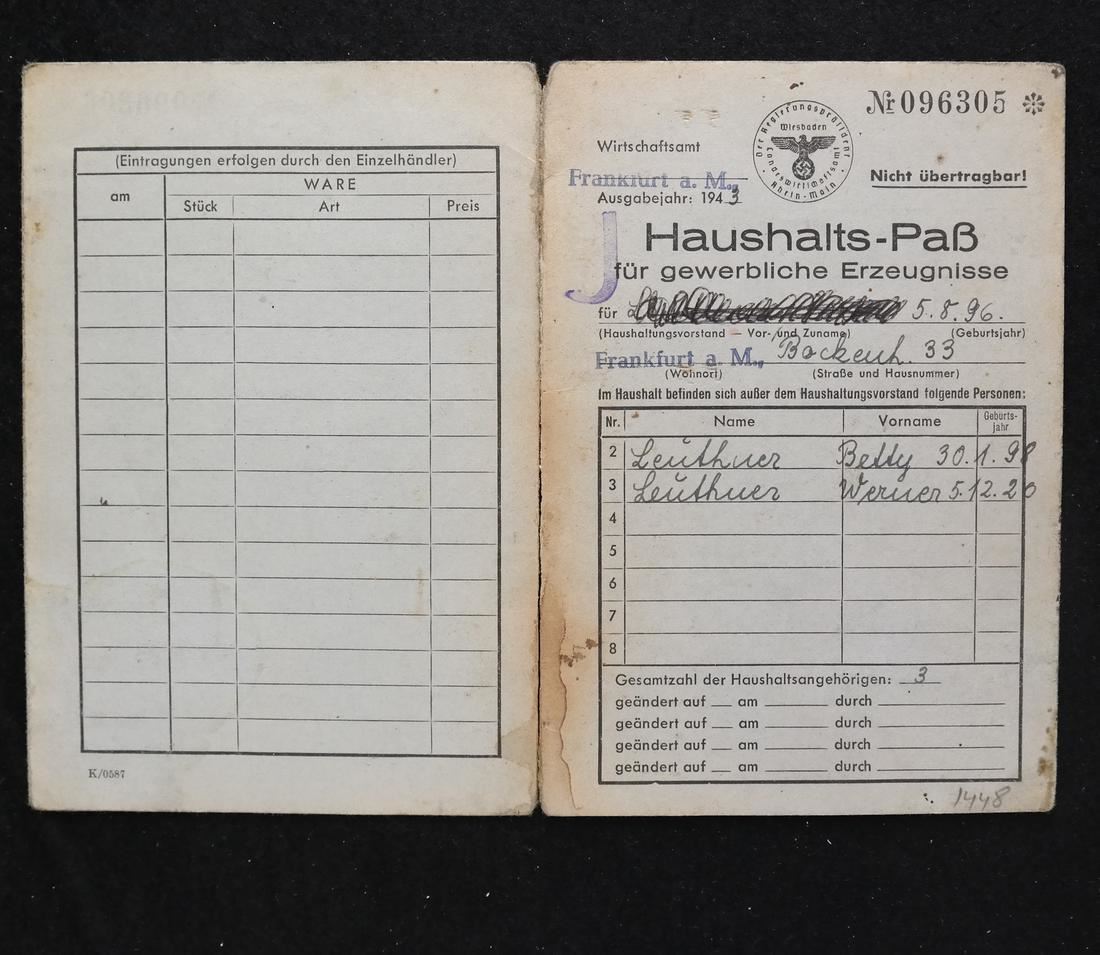 (Eintragungen erfolgen durch den Einzelhändler)
am
WARE
Stück Art Preis
K/0587
Nr 096305
Wirtschaftsamt
Der Regierungspräsident
Wiesbaden
Landeswirtschaftsamt
Rhein-Main
Nicht übertragbar!
Frankfurt a. M.,
Ausgabejahr: 1943
J
Haushalts-Paß
für gewerbliche Erzeugnisse
für 5.8.96.
(Haushaltungsvorstand — Vor- und Zuname) (Geburtsjahr)
Frankfurt a. M., Bockenh. 33
(Wohnort) (Straße und Hausnummer)
Im Haushalt befinden sich außer dem Haushaltungsvorstand folgende Personen:
Nr. Name Vorname Geburts-
jahr
2 Leuthner Betty 30.1.98
3 Leuthner Werner 5.12.20
4
5
6
7
8
Gesamtzahl der Haushaltsangehörigen: 3
geändert auf am durch
geändert auf am durch
geändert auf am durch
geändert auf am durch
1448